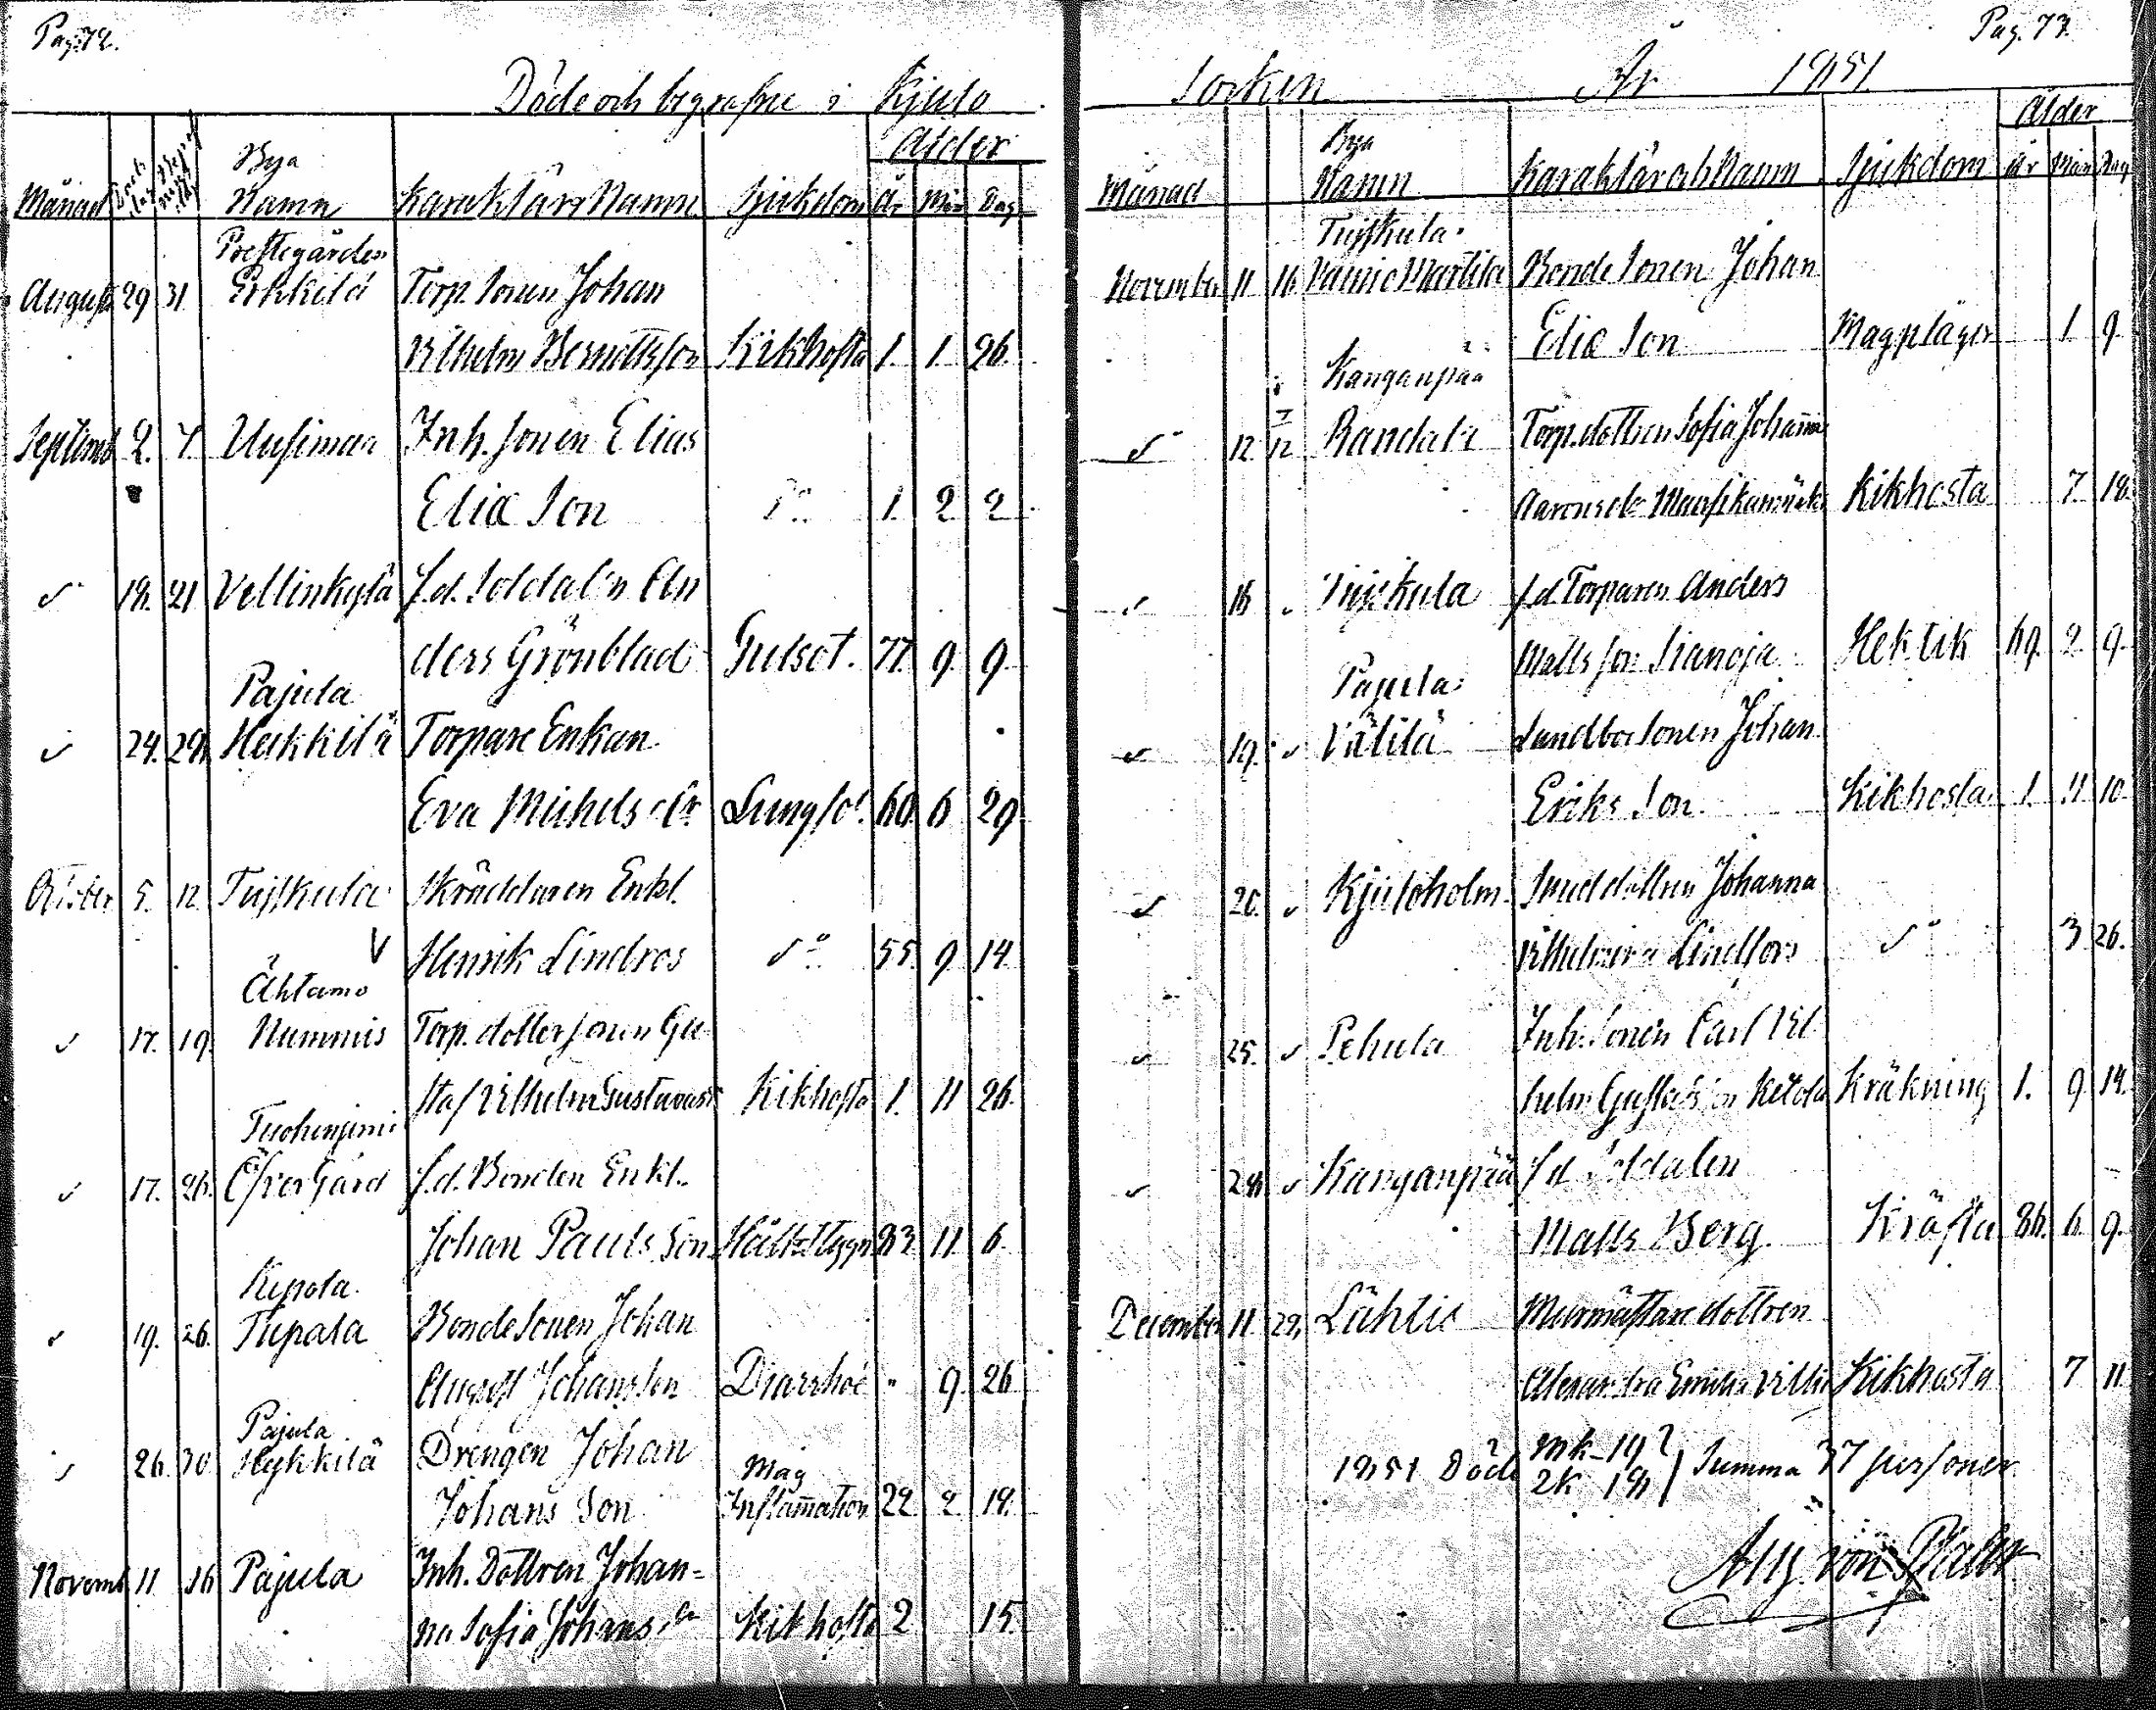 Pag. 72.
Döde och begrafne i Kjulo
Månad Bya Namn Karaktär o Namn Sjukdom Ålder År Mån Dag
Prestegården
August 29 31 Erkkilä Torp. Sonen Johan
Vilhelm Berndtsson Kikhosta 1. 1. 26.
Septemb 2. 7. Uusimaa Inh. Sonen Elias
Eliæ Son Do 1. 2 2
✓ 18. 21 Vellinkylä f.d. Soldaten An
ders Grönblad Gulsot. 77. 9 9
Pajula
✓ 24. 29. Heikkilä Torpare Enkan
Eva Michels dr Lungsot. 60. 6 29
October 5. 12. Tuiskula Skräddaren Enkl.
V Henrik Lindros Do 55. 9 14
Ähtamo
✓ 17. 19. Nummis Torp. dotter sonen Gu
staf Vilhelm Gustavass Kikhosta 1. 11 26.
Tuohinjemi
✓ 17. 26. Öfvergård f.d. Bonden Enkl.
Johan Pauls Son Håll o Stygn 83. 11. 6.
Kepola.
✓ 19. 26. Tupala Bonde Sonen Johan
August Johansson Diarrhoé " 9 26
Pajula
✓ 26. 30 Hykkilä Drengen Johan
Johans Son Mag Inflam̄ation 22 2. 18.
Novemb. 11. 16 Pajula Inh. Dottren Johan-
na Sofia Johans dr Kikhosta 2 15.
Pag. 73.
Socken År 1851.
Månad Bya Namn Karaktär och Namn Sjukdom Ålder År Mån Dag
Tuiskula.
November 11 16 Vainio Marttila Bonde Sonen Johan
Eliæ Son Magplågor 1 9.
Kanganpää
✓ 12. 12 Randala Torp. dottren Sofia Johan̄a
Aarons dr Kikhosta 7. 18.
✓ 16 ✓ Tuiskula f.d. Torparen Anders
Matts son Hektik 69. 2 9.
Pajula
✓ 19. ✓ Välilä Landbo Sonen Johan
Eriks Son Kikhosta 1. 11 10
✓ 20. ✓ Kjuloholm Smed dottren Johanna
Vilhelmina Lindfors Do 3 26.
✓ 25. ✓ Pehula Inh. Sonen Carl Vil
helm Gustafs son Ketola Kräkning 1. 9 14.
✓ 28 ✓ Kanganpää f.d. Soldaten
Matts Berg. Kräfta 86. 6. 9.
December 11 29. Lähtis Murmästare dottren
Alexandra Emilia Kikhosta 7 11
1851 Döde Mk - 19
2k 18 } Summa 37 personer.
Aug. von